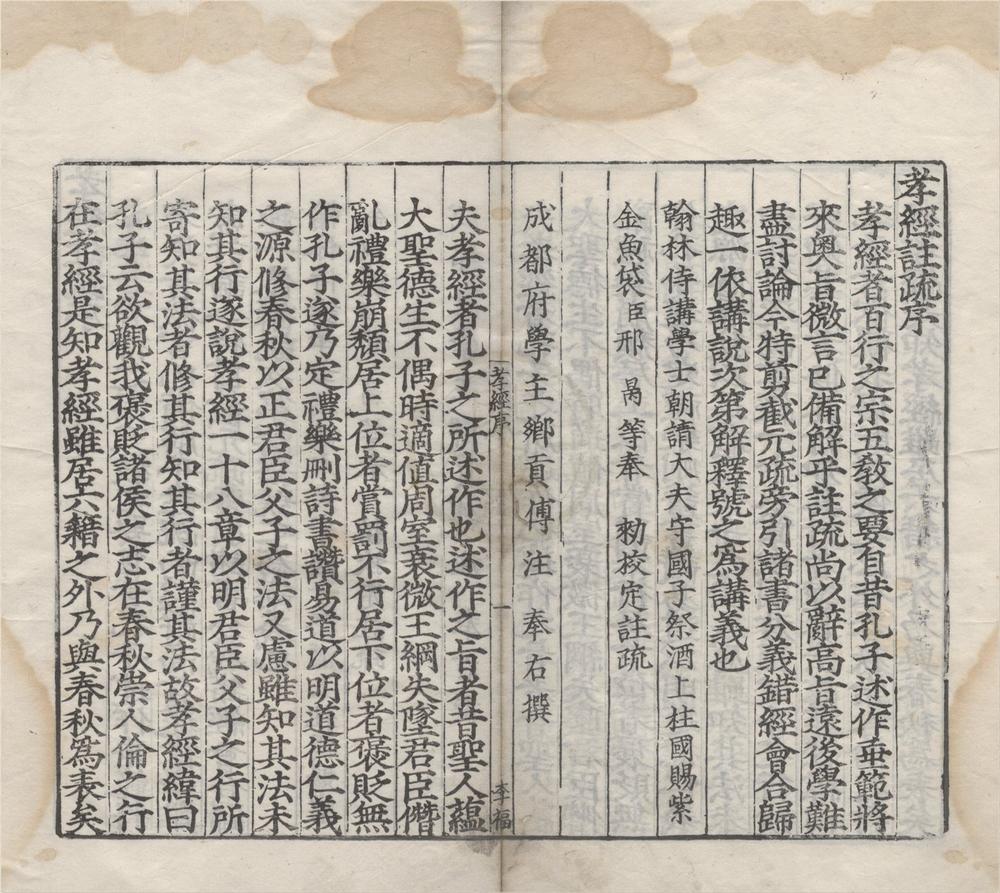 孝經註疏序
孝經者百行之宗五敎之要自昔孔子述作垂範將
來奧旨微言已備解乎註疏尚以辭高旨遠後學難
盡討論今特剪截元疏旁引諸書分義錯經會合歸
趣一依講說次第解釋號之爲講義也
翰林侍講學士朝請大夫守國子祭酒上柱國賜紫
金魚袋臣邢昺等奉 勑挍定註疏
成都府學主鄉貢傅注 奉右撰
夫孝經者孔子之所述作也述作之旨者昔聖人蘊
大聖德生不偶時適值周室衰微王綱失墜君臣僭
亂禮樂崩頹居上位者賞罰不行居下位者襃貶無
作孔子遂乃定禮樂刪詩書讚易道以明道德仁義
之源修春秋以正君臣父子之法又慮雖知其法未
知其行遂說孝經一十八章以明君臣父子之行所
寄知其法者修其行知其行者謹其法故孝經緯曰
孔子云欲觀我襃貶諸侯之志在春秋崇人倫之行
在孝經是知孝經雖居六籍之外乃與春秋爲表矣
孝經序
一
李福